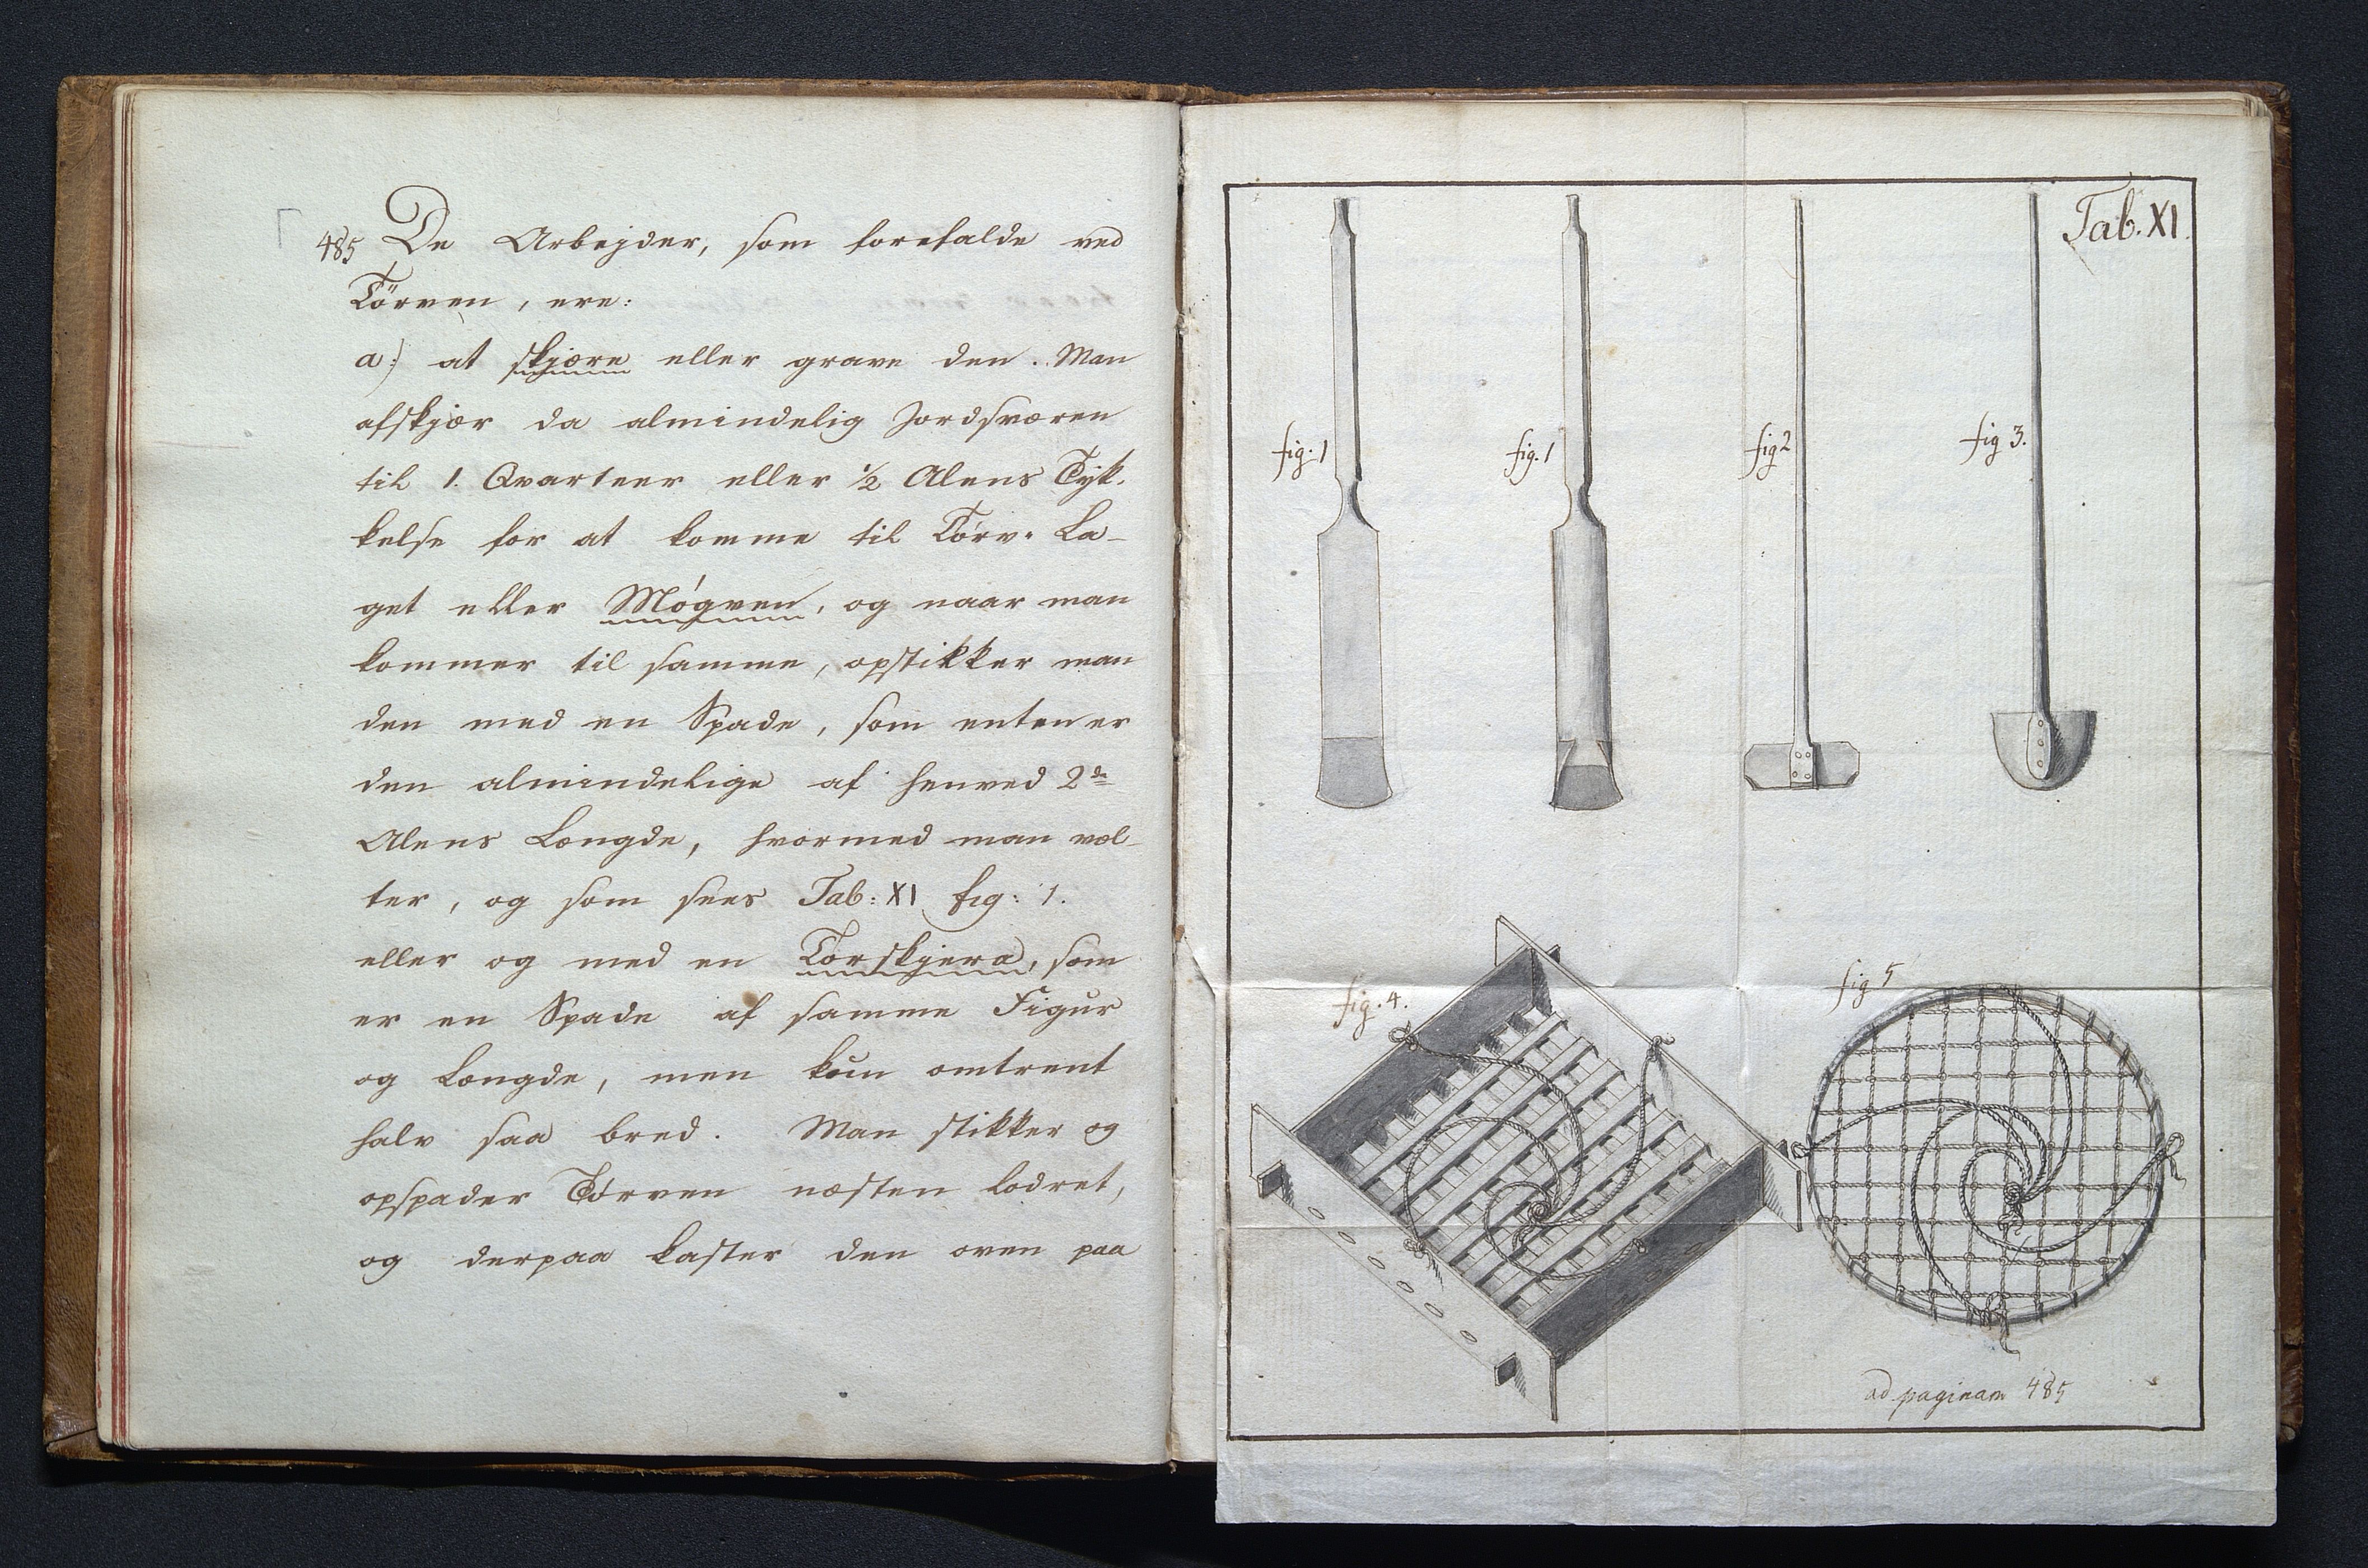 485 De Arbejder, som forefalde ved
Törven, ere:
a) at skjære eller grave den. Man
afskjær da almindelig Jordsværen
til 1. Qvarteer eller ½ Alens Tyk-
kelse for at komme til Tórv-La-
get eller Mógven, og naar man
kommer til samme, opstikker man
den med en Spade, som enten er
den almindelige af henved 2de
Alens Længde, hvormed man væl-
ter, og som sees Tab: XI fig: 1.
eller og med en Torskjera, som
er en Spade af samme Figur
og Længde, men kun omtrent
halv saa bred. Man stikker og
opspader Tórven næsten lodret,
og derpaa kaster den oven paa
Tab. XI.
fig. 1
fig. 1
fig 2
fig 3.
fig. 4.
fig 5
ad paginam 485